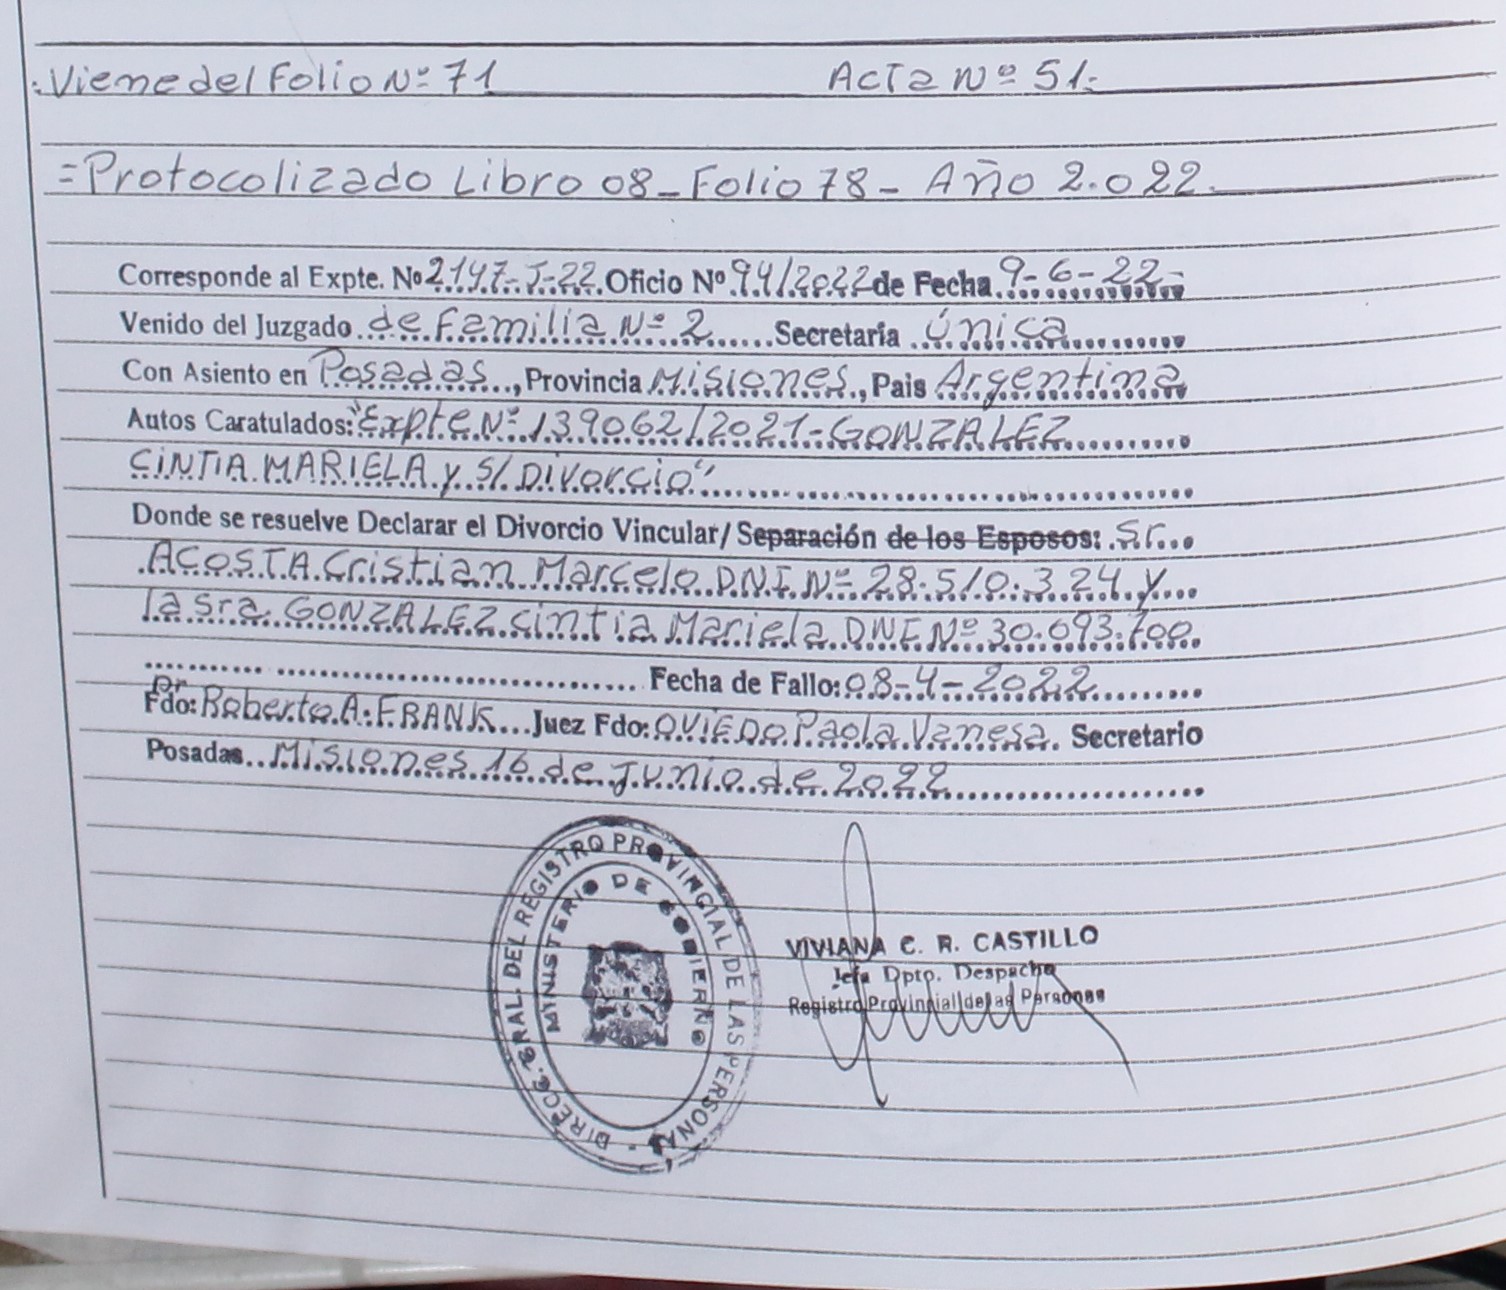 Viene del Folio Nº 71 Acta Nº 51.
=Protocolizado Libro 08_Folio 78_ Año 2.022.
Corresponde al Expte. Nº 2147-J-22. Oficio Nº 94/2022 de Fecha 9-6-22-
Venido del Juzgado de Familia Nº 2 Secretaría Única
Con Asiento en Posadas, Provincia Misiones, Pais Argentina
Autos Caratulados: "Expte Nº 139062/2021-GONZALEZ
CINTIA MARIELA y S/ Divorcio"
Donde se resuelve Declarar el Divorcio Vincular/ Separación de los Esposos: Sr.
ACOSTA Cristian Marcelo D.N.I. Nº 28.510.324 y
la Sra. GONZALEZ Cintia Mariela DNI Nº 30.693.700.
Fecha de Fallo: 08-4-2022
Dr
Fdo: Roberto A. FRANK Juez Fdo: OVIEDO Paola Vanesa. Secretario
Posadas Misiones 16 de Junio de 2022
DIRECC. GRAL. DEL REGISTRO PROVINCIAL DE LAS PERSONAS
MINISTERIO DE GOBIERNO
VIVIANA C. R. CASTILLO
Jefa Dpto. Despacho
Registro Provincial de las Personas